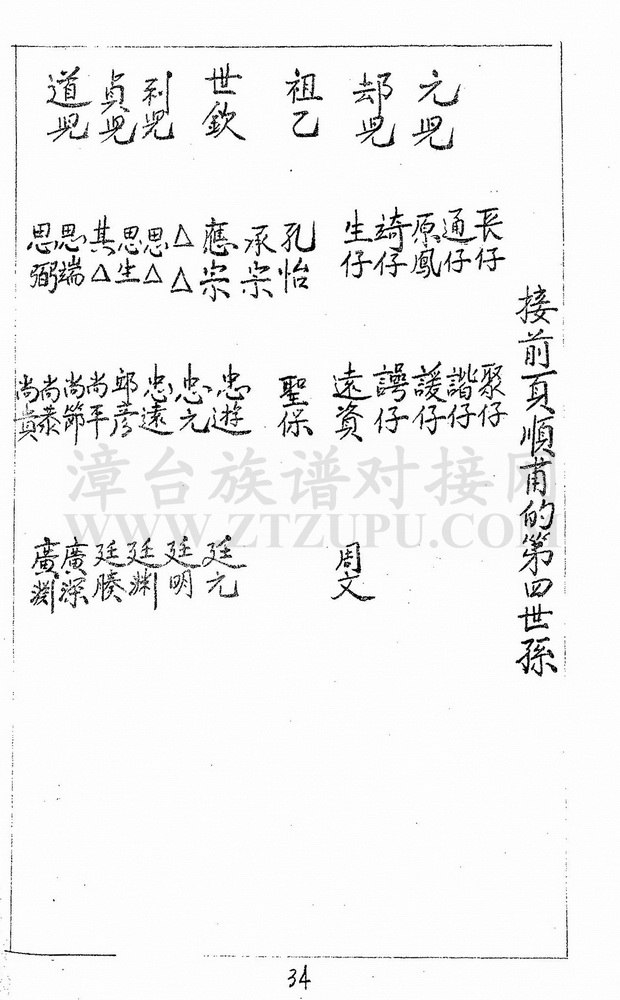 接前頁順甫的第四世孫
元兒
却兒
祖乙
世欽
利兒
貞兒
道兒
長仔
通仔
原鳳
琦仔
生仔
孔怡
承宗
應宗
△△
思△
思生
其△
思端
思弼
聚仔
諧仔
諼仔
諤仔
遠資
聖保
忠遊
忠元
忠遠
邱彥
尚平
尚節
尚恭
尚賓
周文
廷元
廷明
廷渊
廷騰
廣深
廣淵
漳台族谱对接网
WWW.ZTZUPU.COM
34